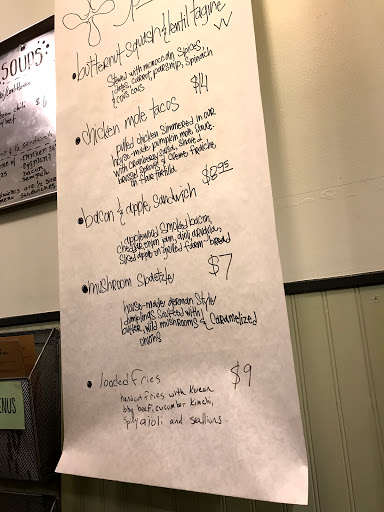 SOUPS
$6
• butternut squash & lentil tagine
VV
stewed with moroccan spices,
dates, currant, parsnip, spinach
& cous cous
$14
• chicken mole tacos
pulled chicken simmered in our
house-made pumpkin mole sauce
with cranberry salsa, shaved
brussel sprouts & creme fraiche
on flour tortilla
• bacon & apple sandwich
applewood smoked bacon,
cheddar, onion jam, aioli, arugula,
sliced apple on grilled farm-bread
$7
• mushroom spaetzle
house-made german style
dumplings sauteed with
butter, wild mushrooms & caramelized
onions
• loaded fries
$9
handcut fries with korean
bbq beef, cucumber kimchi,
spicy aioli and scallions.
ENUS